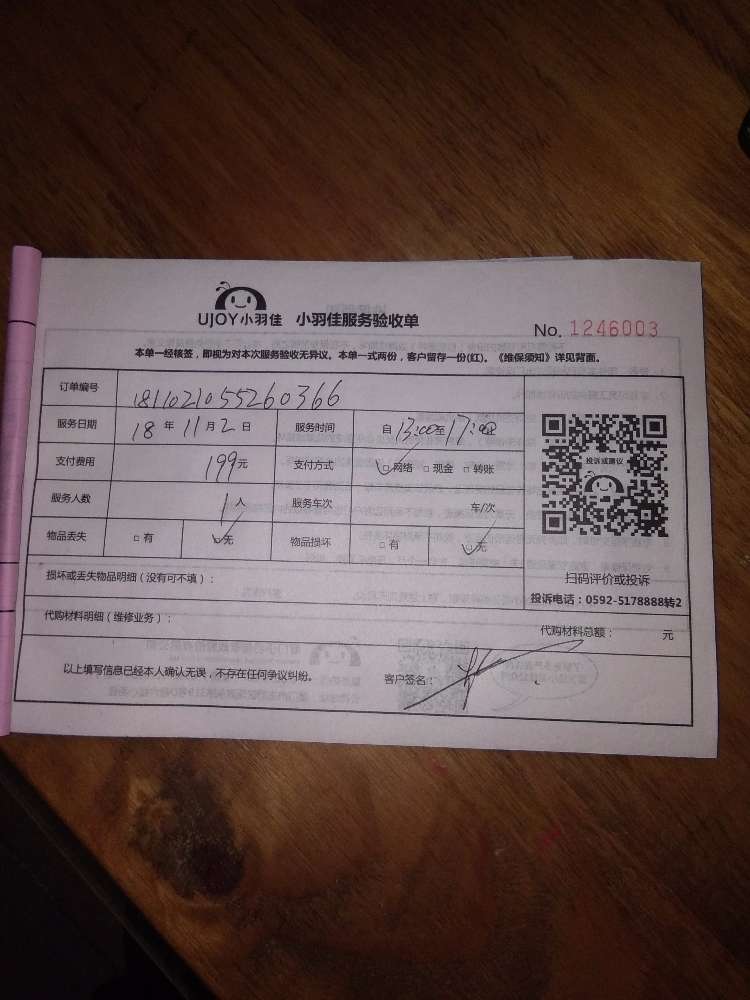 UJOY小羽佳 小羽佳服务验收单
No. 1246003
本单一经核签，即视为对本次服务验收无异议。本单一式两份，客户留存一份(红)。《维保须知》详见背面。
订单编号 1811021055260366
服务日期 18 年 11 月 2 日 服务时间 自 13:00 至 17:00
支付费用 199元 支付方式 ☑网络 □现金 □转账
投诉或建议
服务人数 1 人 服务车次 车/次
物品丢失 □有 ☑无 物品损坏 □有 ☑无
扫码评价或投诉
投诉电话：0592-5178888转2
损坏或丢失物品明细（没有可不填）：
代购材料明细（维修业务）： 代购材料总额： 元
以上填写信息已经本人确认无误，不存在任何争议纠纷。 客户签名：